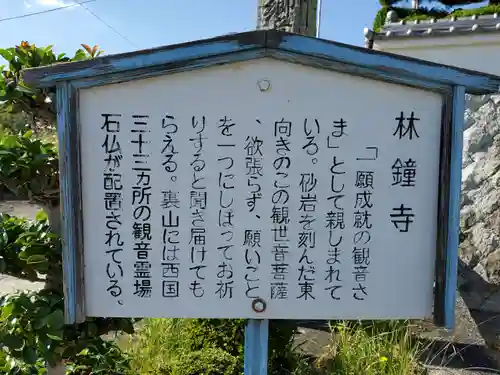 林鐘寺
「一願成就の観音さ
ま」として親しまれて
いる。砂岩を刻んだ東
向きのこの観世音菩薩
、欲張らず、願いごと
を一つにしぼってお祈
りすると聞き届けても
らえる。裏山には西国
三十三カ所の観音霊場
石仏が配置されている。